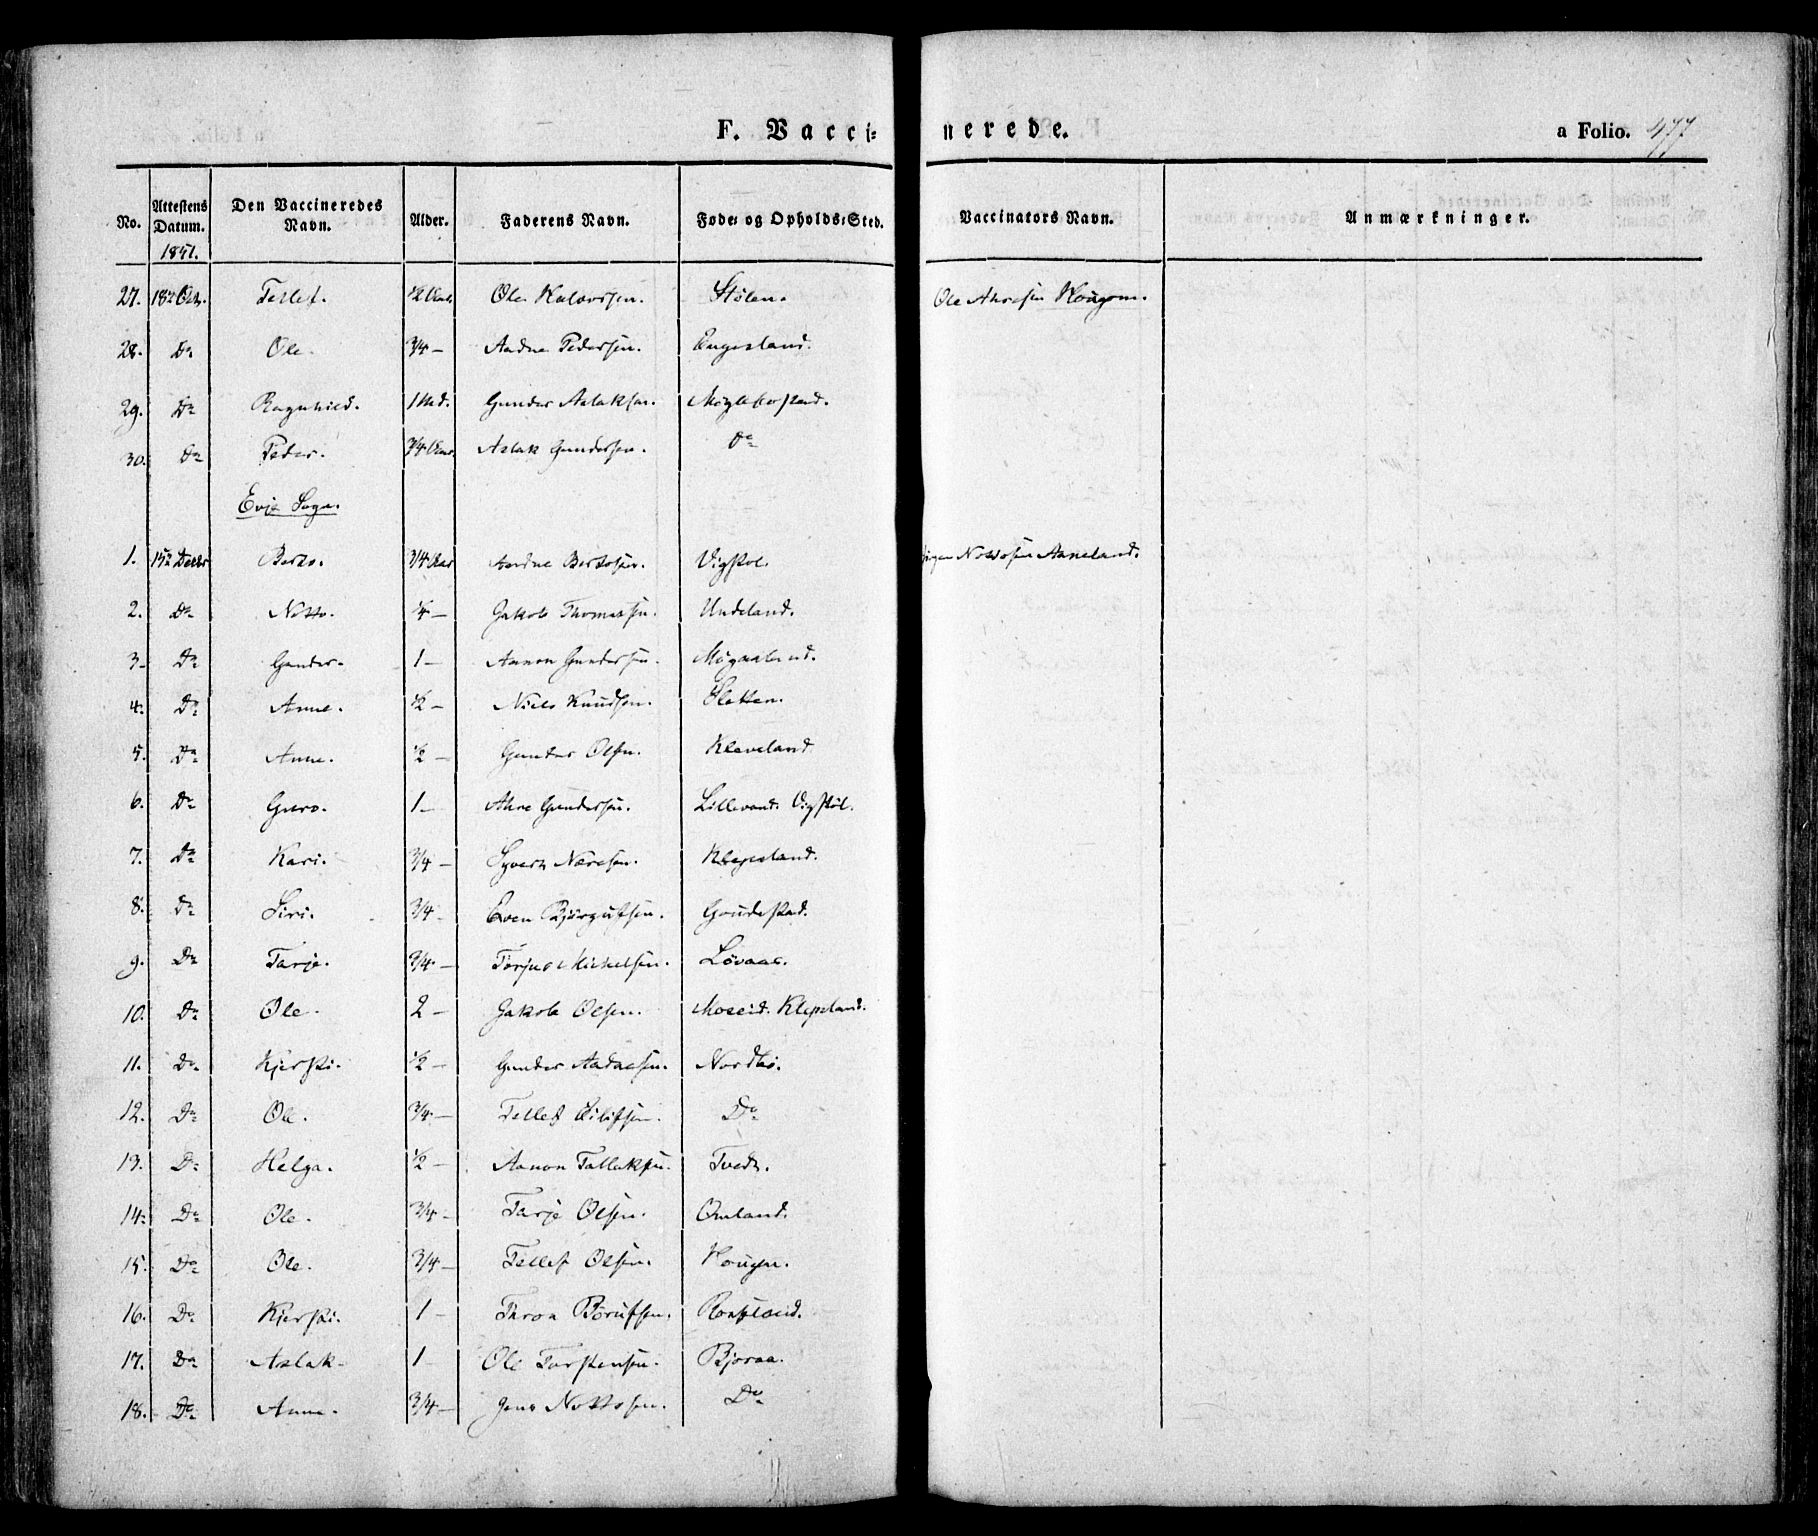 F. Vacci- nerede. a Folio. 477
No. Attestens Datum. 1841. Den Vaccineredes Navn. Alder. Faderens Navn. Føde- og Opholds-Sted. Vaccinators Navn. Anmærkninger.
27. 18de Octr. Tellef. 1/2 Aar Ole Halvorsen. Stølen. Ole Hougen.
28. Do Ole. 3/4 — Aadne Pedersen. Engesland.
29. Do Ragnhild. 1 Md. Gunder Aslaksen. Møglebostad.
30. Do Peder. 3/4 Aar. Aslak Gundersen. Do
Evje Sogn.
1. 15de Decbr Berto. 3/4 Aar Aadne Bertosen. Vigstøl. Nottosen Aaneland.
2. Do Notto. 1/4 — Jakob Thomassen. Undeland.
3. Do Gunder. 1 — Aanon Gundersen.
4. Do Anne. 1/2 — Niels Knudsen. Sletten.
5. Do Anne. 1/2 — Gunder Olsen. Kleveland
6. Do Guro. 1 — Gundersen. Lillevand. Vigstøl.
7. Do Kari. 3/4 — Syvert Klepsland.
8. Do Siri. 3/4 — Even Bjorgufsen. Goudestad.
9. Do Tarje. 3/4 — Torjus Mickelsen. Løvaas.
10. Do Ole. 2 — Jakob Olsen. Moseid. Klepsland.
11. Do Kjersti. 1/2 — Gunder Aadnesen. Nordbø.
12. Do Ole. 3/4 — Tellef Eilifsen. Do
13. Do Helga. 1/2 — Aanon Tallaksen. Tvedt.
14. Do Ole. 3/4 — Tarje Olsen. Omland.
15. Do Ole. 3/4 — Tellef Olsen. Hougen.
16. Do Kjersti. 1 — Thron Borufsen. Rosseland.
17. Do Aslak. 1 — Ole Torstensen. Bjoraa.
18. Do Anne. 3/4 — Jens Nottosen. Do